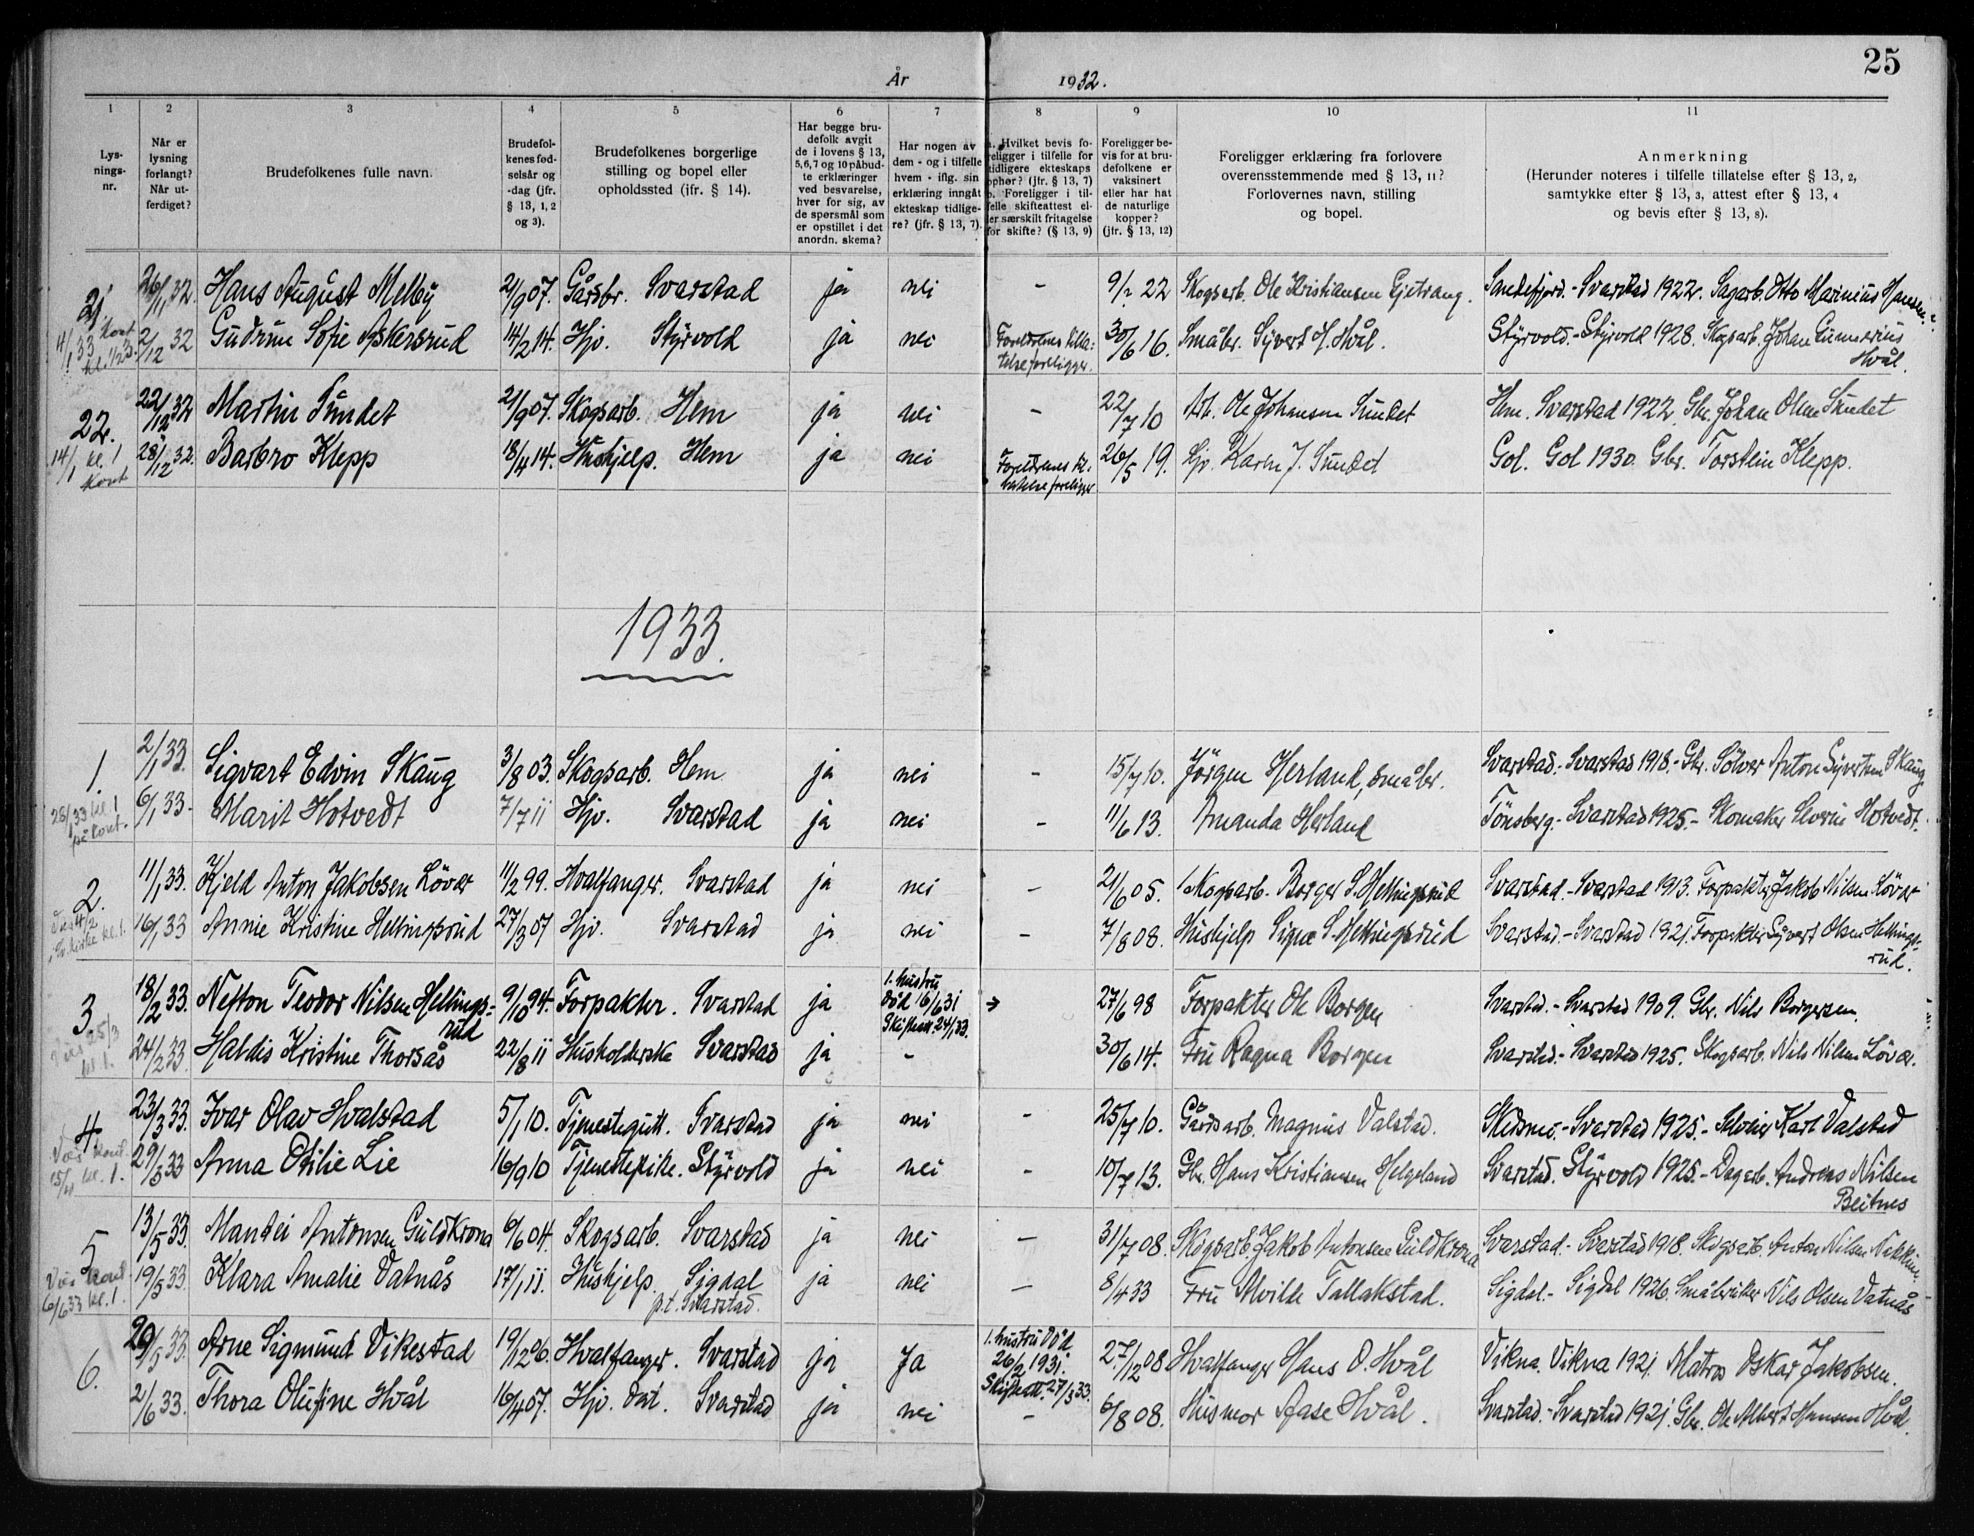 25
År 1932.
1 2 3 4 5 6 7 8 9 10 11
Lysningsnr.
Når er lysning forlangt? Når utferdiget?
Brudefolkenes fulle navn.
Brudefolkenes fødselsår og -dag (jfr. § 13, 1, 2 og 3).
Brudefolkenes borgerlige stilling og bopel eller opholdssted (jfr. § 14).
Har begge brudefolk avgitt de i lovens § 13, 5, 6, 7 og 10 påbudte erklæringer ved besvarelse, hver for sig, av de spørsmål som er opstillet i det anordn. skema?
Har nogen av dem - og i tilfelle hvem - iflg. sin erklæring inngått ekteskap tidligere? (jfr. § 13, 7).
a. Hvilket bevis foreligger i tilfelle for tidligere ekteskaps ophør? (jfr. § 13, 7) b. Foreligger i tilfelle skifteattest eller særskilt fritagelse for skifte? (§ 13, 9)
Foreligger bevis for at brudefolkene er vaksinert eller har hat de naturlige kopper? (jfr. § 13, 12)
Foreligger erklæring fra forlovere overensstemmende med § 13, 11? Forlovernes navn, stilling og bopel.
Anmerkning (Herunder noteres i tilfelle tillatelse efter § 13, 2, samtykke efter § 13, 3, attest efter § 13, 4 og bevis efter § 13, 8).
21 26/11 32. Hans August Melby 2/9 07. Gårdbr. Svarstad ja nei - 9/2 22 Skogsarb. Ole Kristiansen Gjetrang. Sandefjord. - Svarstad 1922. Sagarb. Otto Marinius Hansen.
14/1 33 kont 2/12 32 Gudrun Sofie Askersrud 14/2 14. Hjv. Styrvold ja nei Foreldrenes tillatelse foreligger. 30/6 16. Småbr. Syvert H. Hvål. Styrvold. - Styrvold 1928. Skogsarb. Johan Gunnerius Hvål.
22. 22/12 32 Martin Sundet 2/9 07. Skogsarb. Hem ja nei - 22/7 10 Arb. Ole Johansen Sundet Hem. Svarstad 1922. Gbr. Johan Olsen Sundet
14/1 kl. 1 kont 28/12 32. Barbro Klepp 18/4 14. Hushjelp. Hem ja nei Foreldrenes tillatelse foreligger 26/5 19. Hjv. Karen J. Sundet Gol. Gol 1930. Gbr. Torstein Klepp.
1933.
1. 2/1 33. Sigvart Edvin Skaug 3/8 03. Skogsarb. Hem ja nei - 15/7 10. Jörgen Herland, småbr. Svarstad. - Svarstad 1918. - Gbr. Sölver Anton Syversen Skaug
28/1 33 kl. 1 på kont. 6/1 33. Marit Hotvedt 7/7 11 Hjv. Svarstad ja nei - 11/6 13. Amanda Herland Tönsberg. - Svarstad 1925. - Skomaker Severin Hotvedt.
2. 11/1 33. Kjeld Anton Jakobsen Löver 11/2 99. Hvalfanger. Svarstad ja nei - 21/6 05. Skogsarb. Borger S. Hellingsrud Svarstad. - Svarstad 1913. Forpakter Jakob Nilsen Löver
Vies 4/2 Sv. kirke kl. 1. 16/1 33 Annie Kristine Hellingsrud 27/3 07 Hjv. Svarstad ja nei - 7/8 08. Hushjelp Signe S. Hellingsrud Svarstad. - Svarstad 1921. Forpakter Syvert Olsen Hellingsrud.
3 18/2 33. Nefton Teodor Nilsen Hellingsrud 9/10 94. Forpakter. Svarstad ja 1. hustru död 16/6 31 Skifteatt. 24/1 33. → 27/6 98 Forpakter Ole Borgen Svarstad. - Svarstad 1909. Gbr. Nils Borgersen.
Vies 25/3 kl. 1. 24/2 33 Haldis Kristine Thorsås 22/8 11 Husholderske Svarstad ja - 30/6 14. Fru Ragna Borgen Svarstad. - Svarstad 1925. Skogsarb. Nils Nilsen Löver.
4. 23/3 33. Ivar Olav Hvalstad 5/1 10. Tjenestegutt. Svarstad ja nei - 25/7 10. Gårdsarb. Magnus Valstad. Skedsmo. - Svarstad 1925. - Karl Valstad
Vies kont. 15/4 kl. 1. 29/3 33 Anna Otilie Lie 16/9 10 Tjenestepike. Styrvold ja nei - 10/7 13. Gbr. Hans Kristiansen Helgeland Svarstad. Styrvold 1925. - Dagarb. Andreas Nilsen Beitnes
5 13/5 33. Mandei Antonsen Guldkrona 6/6 04. Skogsarb. Svarstad ja nei - 31/7 08. Skogsarb. Jakob Antonsen Guldkrona Svarstad. - Svarstad 1918. Skogsarb. Anton Nilsen
Vies kont 6/6 33 kl. 1. 19/5 33. Klara Amalie Vatnås 17/1 11. Hushjelp. Sigdal p.t. Svarstad. ja nei - 8/4 33 Fru Mville Tallakstad. Sigdal. - Sigdal 1926. Småbruker Nils Olsen Vatnås
6. 29/5 33. Arne Sigmund Vikestad 19/12 06. Hvalfanger. Svarstad ja Ja 1. hustru död 26/2 1931. Skifteatt. 27/3 33. 27/12 08 Hvalfanger Hans O. Hvål Vikna. Vikna 1921. Matros Oskar Jakobsen.
2/6 33. Thora Olufine Hvål 16/4 07. Hjv. dat. Svarstad ja nei - 6/8 08. Husmor Aase Hvål. Svarstad. - Svarstad 1921. Gbr. Ole Albert Hansen Hvål.